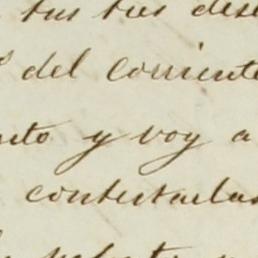 tus tres dese
del corriente
nto y voy a
contestarlas